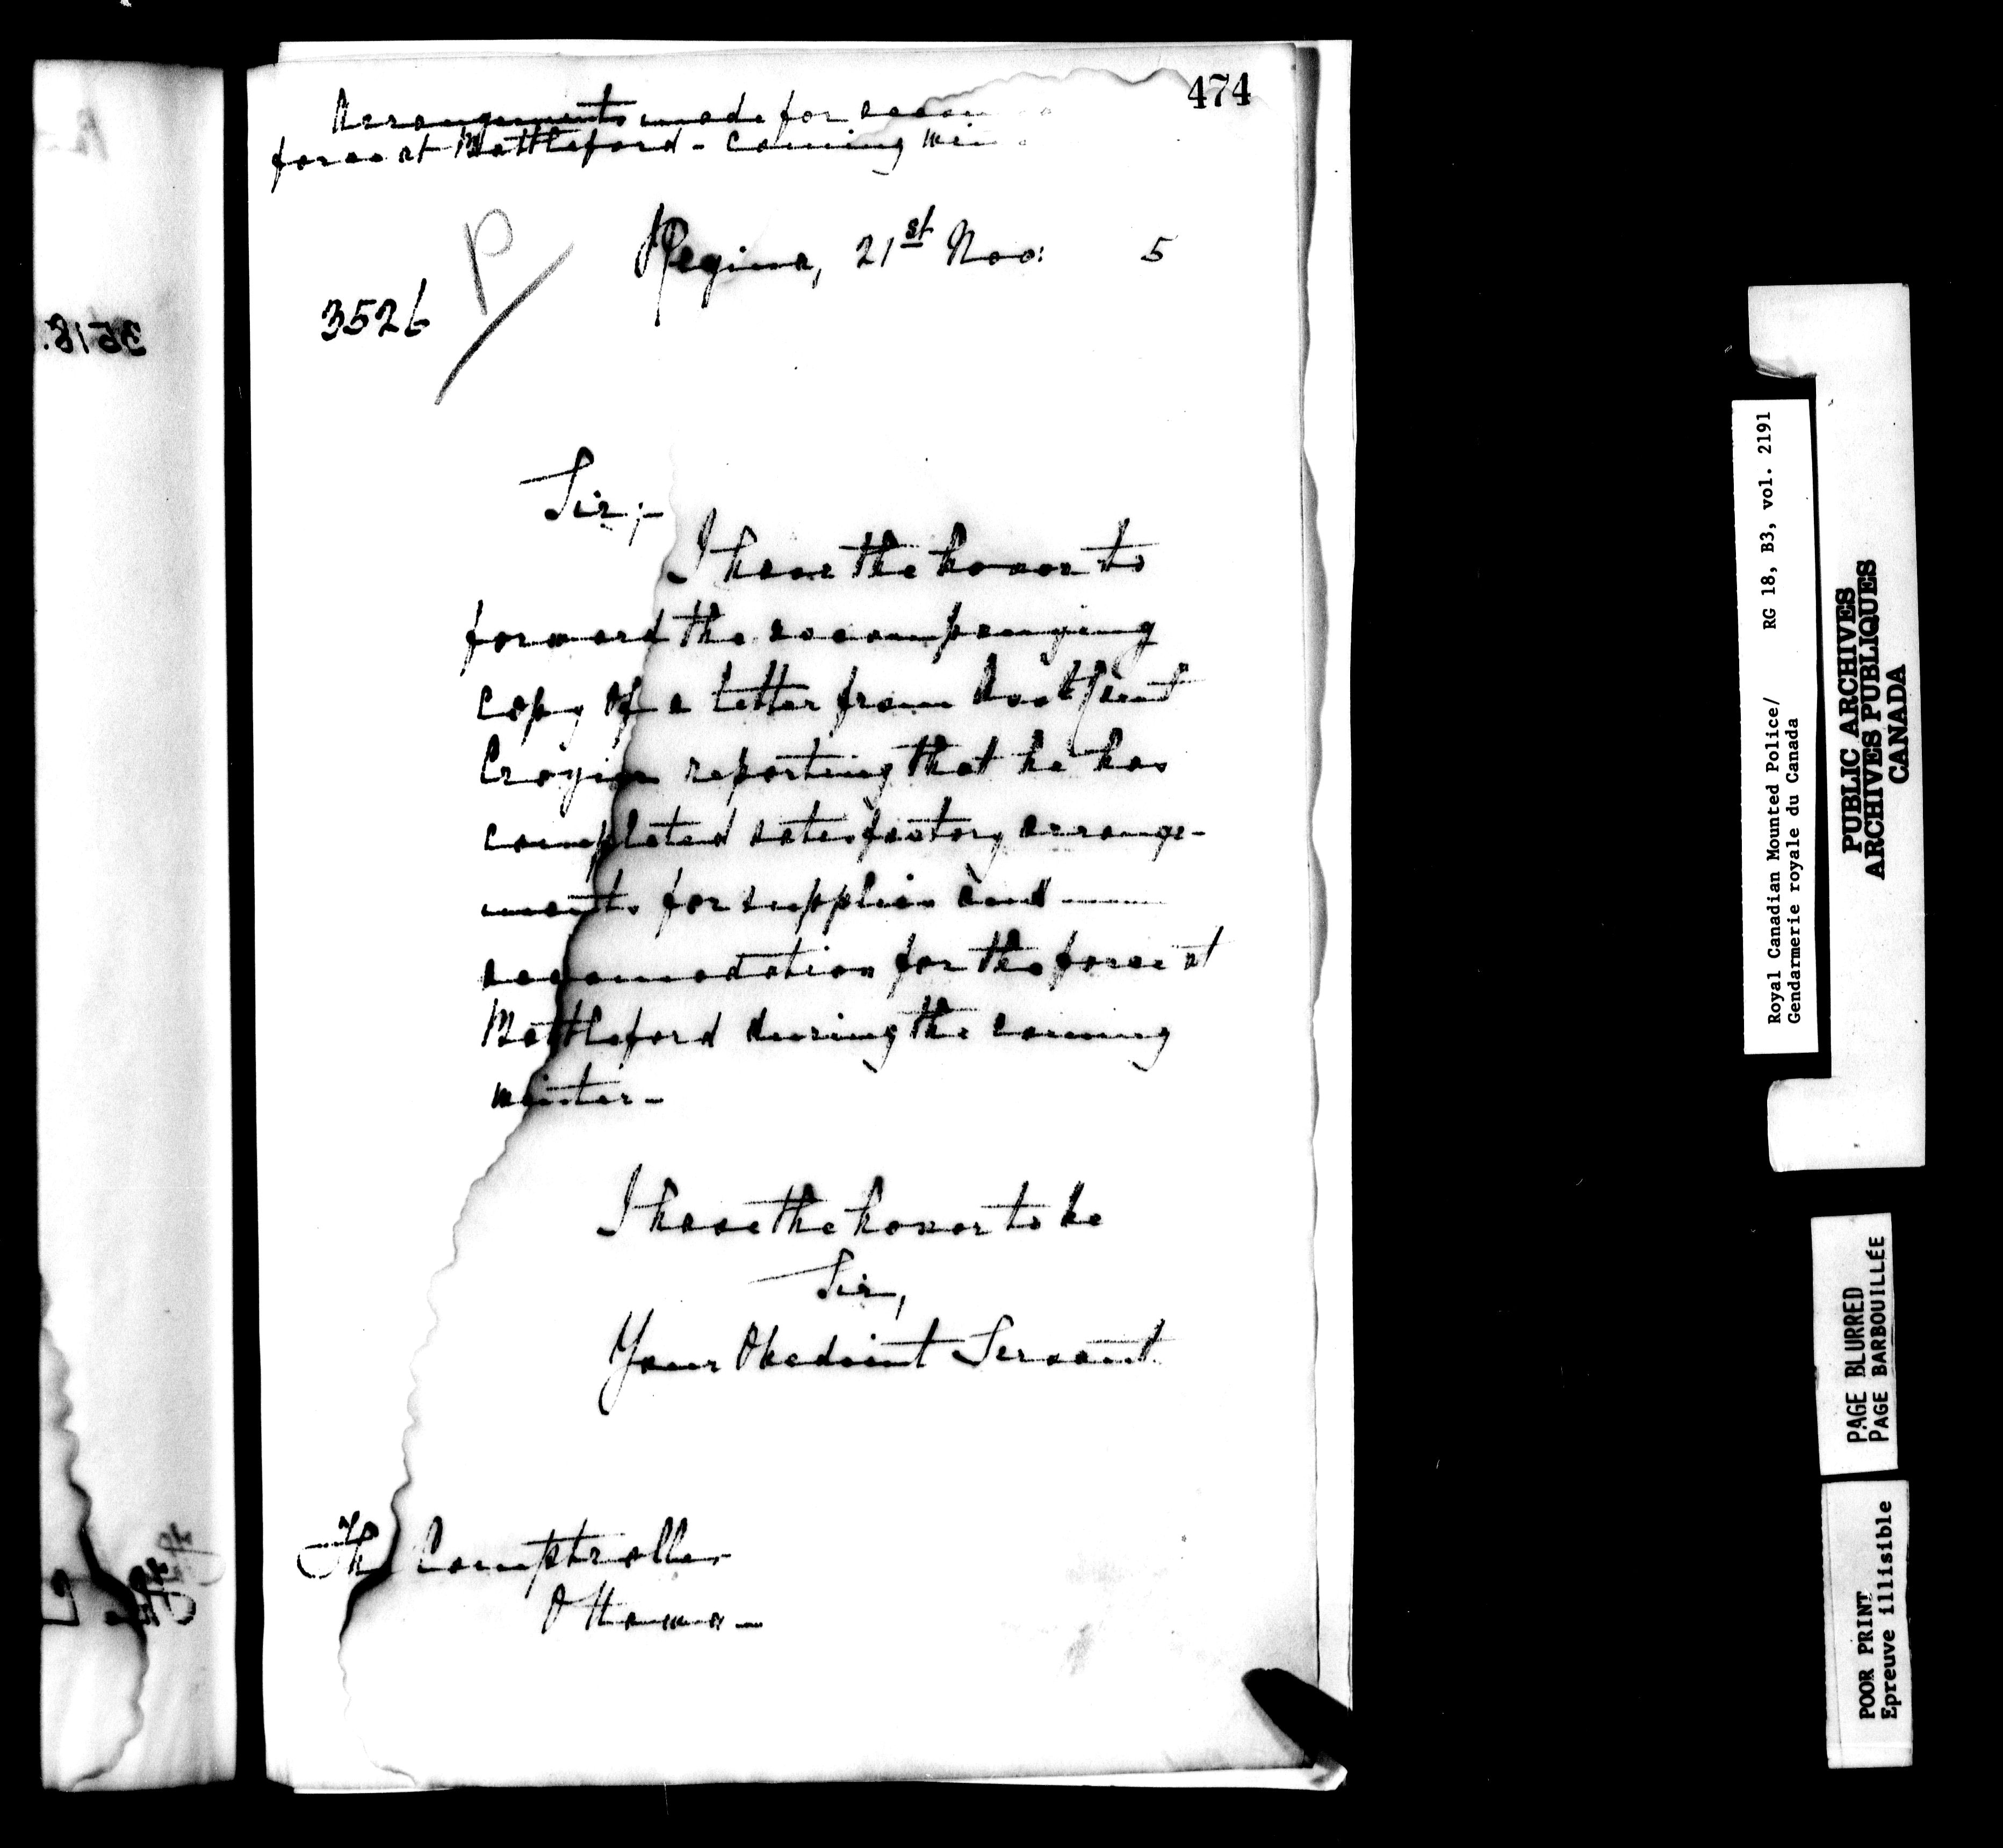 474
Arrangements made for accom
force at Battleford - Coming win
Regina, 21st Nov: 5
P
3526
Sir;-
I have the honor to
forward the accompanying
copy of a letter from Asst Supt
Crozier reporting that he has
completed satisfactory arrange-
ments for supplies and
accomodation for the force at
Battleford during the coming
winter -
I have the honor to be
Sir,
Your Obedient Servant
The Comptroller
Ottawa -
Royal Canadian Mounted Police/ RG 18, B3, vol. 2191
Gendarmerie royale du Canada
PUBLIC ARCHIVES
ARCHIVES PUBLIQUES
CANADA
PAGE BLURRED
PAGE BARBOUILLÉE
POOR PRINT
Epreuve illisible